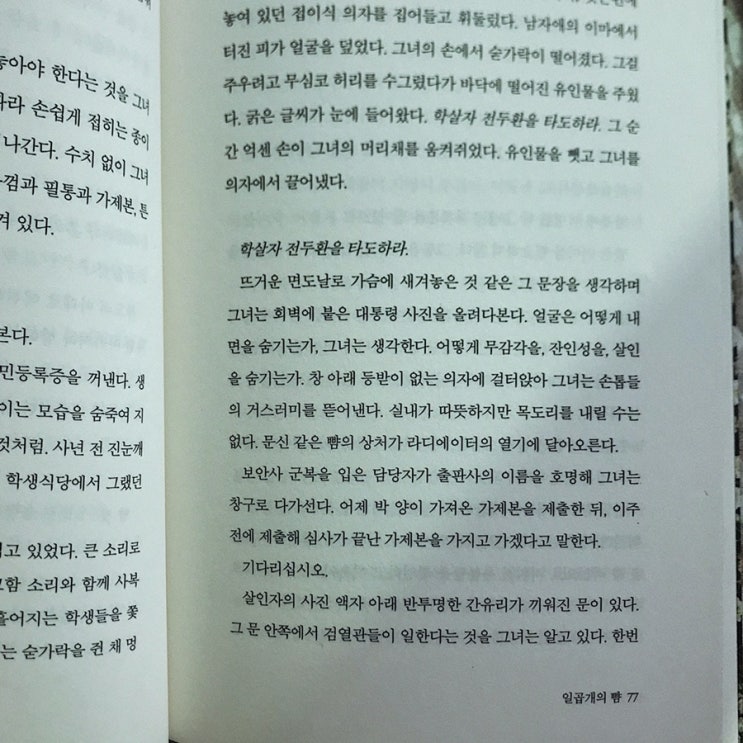 좋아야 한다는 것을 그녀
따라 손쉽게 접히는 종이
나간다. 수치 없이 그녀
껌과 필통과 가제본, 튼
겨 있다.
본다.
민등록증을 꺼낸다. 생
이는 모습을 숨죽여 지
것처럼. 사년 전 진눈깨
학생식당에서 그랬던
고 있었다. 큰 소리로
함 소리와 함께 사복
흩어지는 학생들을 쫓
는 숟가락을 쥔 채 멍
놓여 있던 접이식 의자를 집어들고 휘둘렀다. 남자애의 이마에서
터진 피가 얼굴을 덮었다. 그녀의 손에서 숟가락이 떨어졌다. 그걸
주우려고 무심코 허리를 수그렸다가 바닥에 떨어진 유인물을 주웠
다. 굵은 글씨가 눈에 들어왔다. 학살자 전두환을 타도하라. 그 순
간 억센 손이 그녀의 머리채를 움켜쥐었다. 유인물을 뺏고 그녀를
의자에서 끌어냈다.
학살자 전두환을 타도하라.
뜨거운 면도날로 가슴에 새겨놓은 것 같은 그 문장을 생각하며
그녀는 회벽에 붙은 대통령 사진을 올려다본다. 얼굴은 어떻게 내
면을 숨기는가, 그녀는 생각한다. 어떻게 무감각을, 잔인성을, 살인
을 숨기는가. 창 아래 등받이 없는 의자에 걸터앉아 그녀는 손톱들
의 거스러미를 뜯어낸다. 실내가 따뜻하지만 목도리를 내릴 수는
없다. 문신 같은 뺨의 상처가 라디에이터의 열기에 달아오른다.
보안사 군복을 입은 담당자가 출판사의 이름을 호명해 그녀는
창구로 다가선다. 어제 박 양이 가져온 가제본을 제출한 뒤, 이주
전에 제출해 심사가 끝난 가제본을 가지고 가겠다고 말한다.
기다리십시오,
살인자의 사진 액자 아래 반투명한 간유리가 끼워진 문이 있다.
그 문 안쪽에서 검열관들이 일한다는 것을 그녀는 알고 있다. 한번
일곱개의 뺨 77